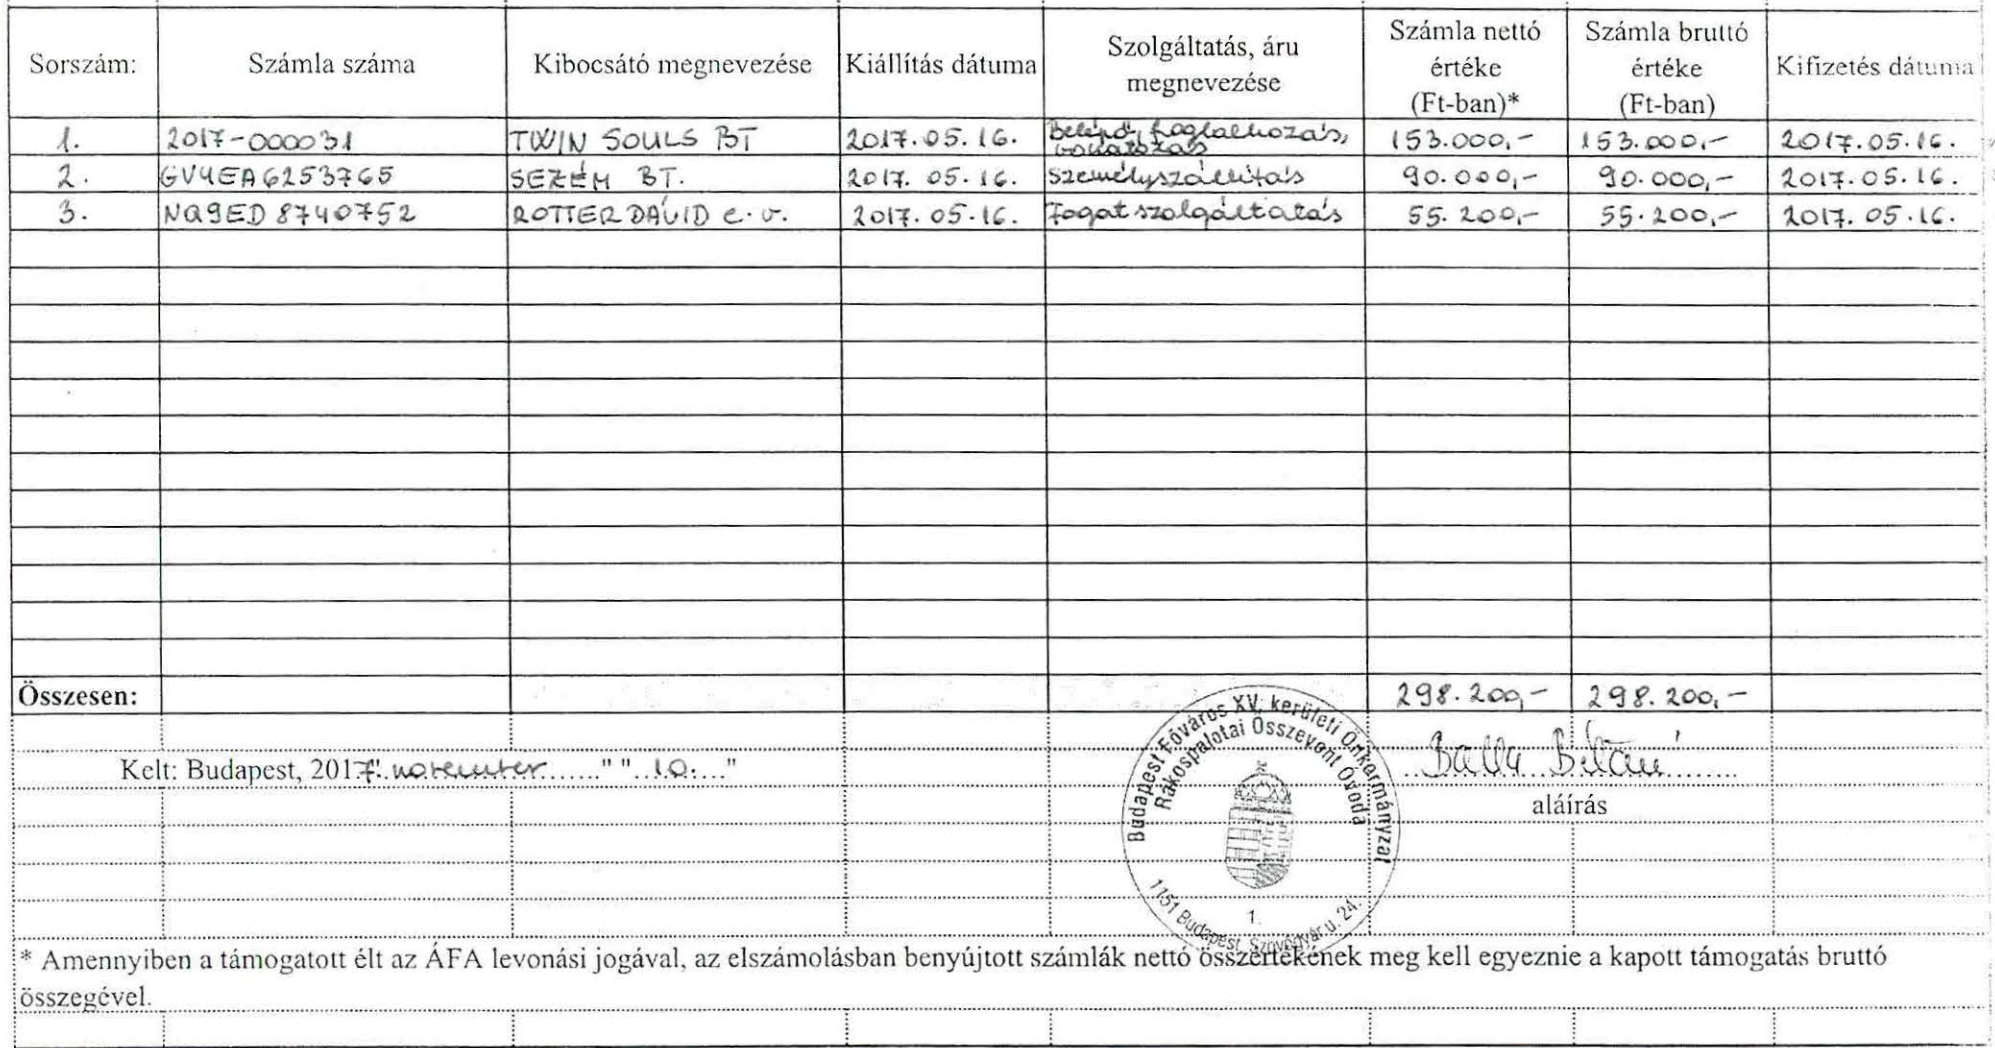 Sorszám: Számla száma Kibocsátó megnevezése Kiállítás dátuma Szolgáltatás, áru megnevezése Számla nettó értéke (Ft-ban)* Számla bruttó értéke (Ft-ban) Kifizetés dátuma
1. 2017-000031 TWIN SOULS BT 2017.05.16. Belépő, foglalkozás, 153.000,- 153.000,- 2017.05.16.
2. GV4EA6253765 SEZÉM BT. 2017.05.16. Személyszállítás 90.000,- 90.000,- 2017.05.16.
3. NQ9ED8740752 ROTTER DÁVID e.v. 2017.05.16. Fogatszolgáltatás 55.200,- 55.200,- 2017.05.16.
Összesen: 298.200,- 298.200,-
Kelt: Budapest, 2017. november "10."
Balla
aláírás
Budapest Főváros XV. kerületi Önkormányzat
Rákospalotai Összevont Óvoda
1.
1151 Budapest, Szövőgyár u. 24.
* Amennyiben a támogatott élt az ÁFA levonási jogával, az elszámolásban benyújtott számlák nettó összértékének meg kell egyeznie a kapott támogatás bruttó
összegével.